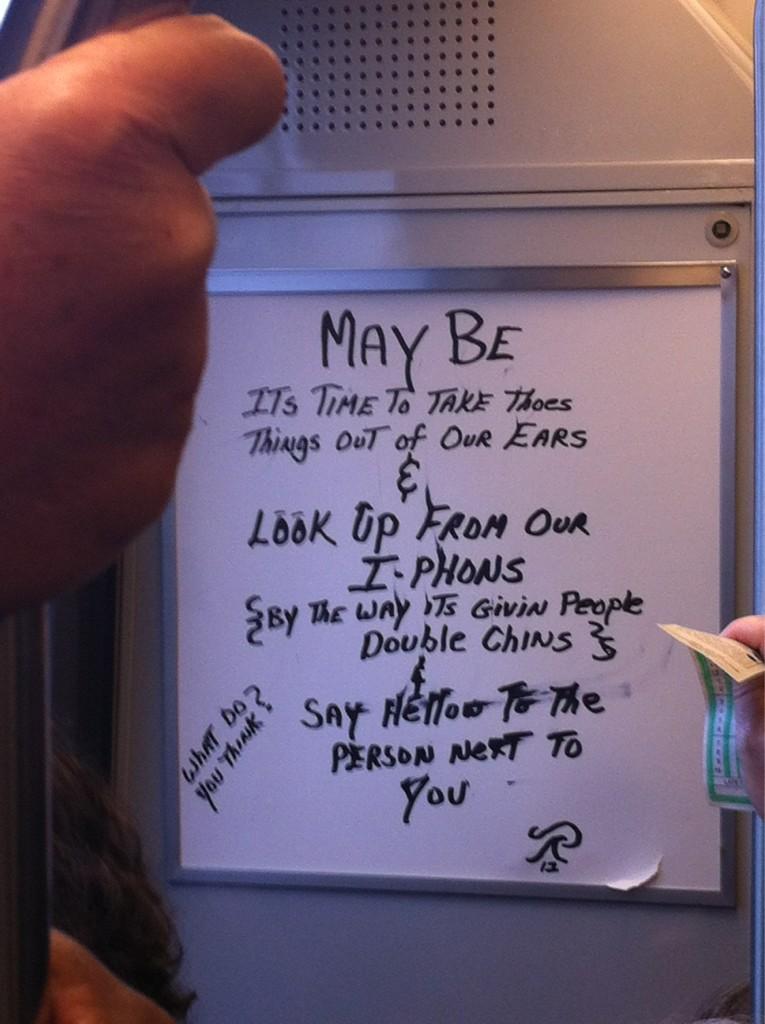 MAY BE
ITS TIME TO TAKE Thoes
Things OUT of OUR EARS
&
LOOK UP FROM OUR
I-PHONS
{BY THE WAY ITS GIVIN People
Double CHINS}
&
SAY Hellow To The
PERSON NEXT TO
YOU
WHAT DO
YOU THINK?
12